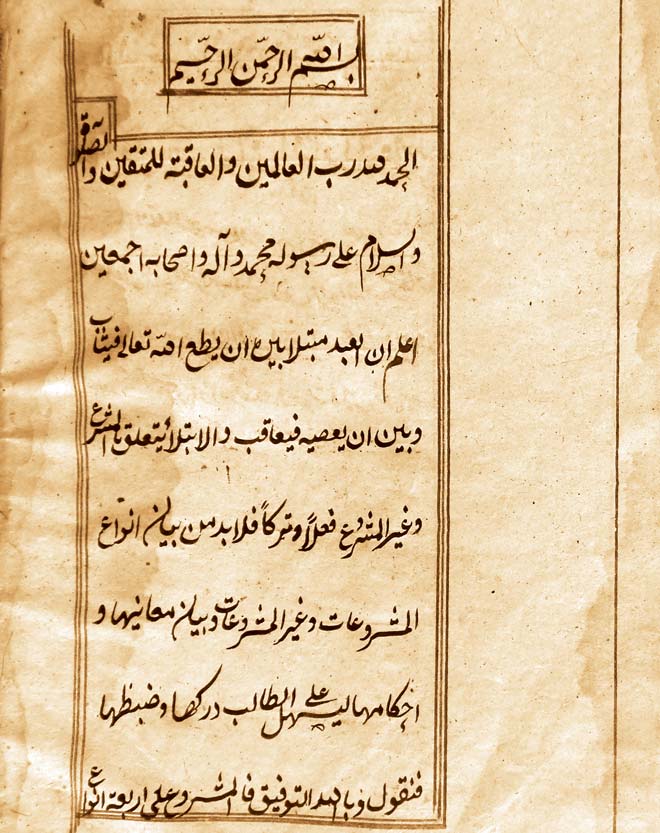 بسم الله الرحمن الرحيم
الحمد لله رب العالمين والعاقبة للمتقين والصلوة
والسلام على رسوله محمد وآله واصحابه اجمعين
اعلم ان العبد مبتلا بين ان يطع الله تعالى فيثاب
وبين ان يعصيه فيعاقب والابتلأ يتعلق بالمشروع
وغير المشروع فعلاً وتركاً فلا بد من بيان انواع
المشروعات وغير المشروعات وبيان معانيها و
احكامها ليسهل على الطالب دركها وضبظها
فنقول وبالله التوفيق فالمشروع على اربعة انواع